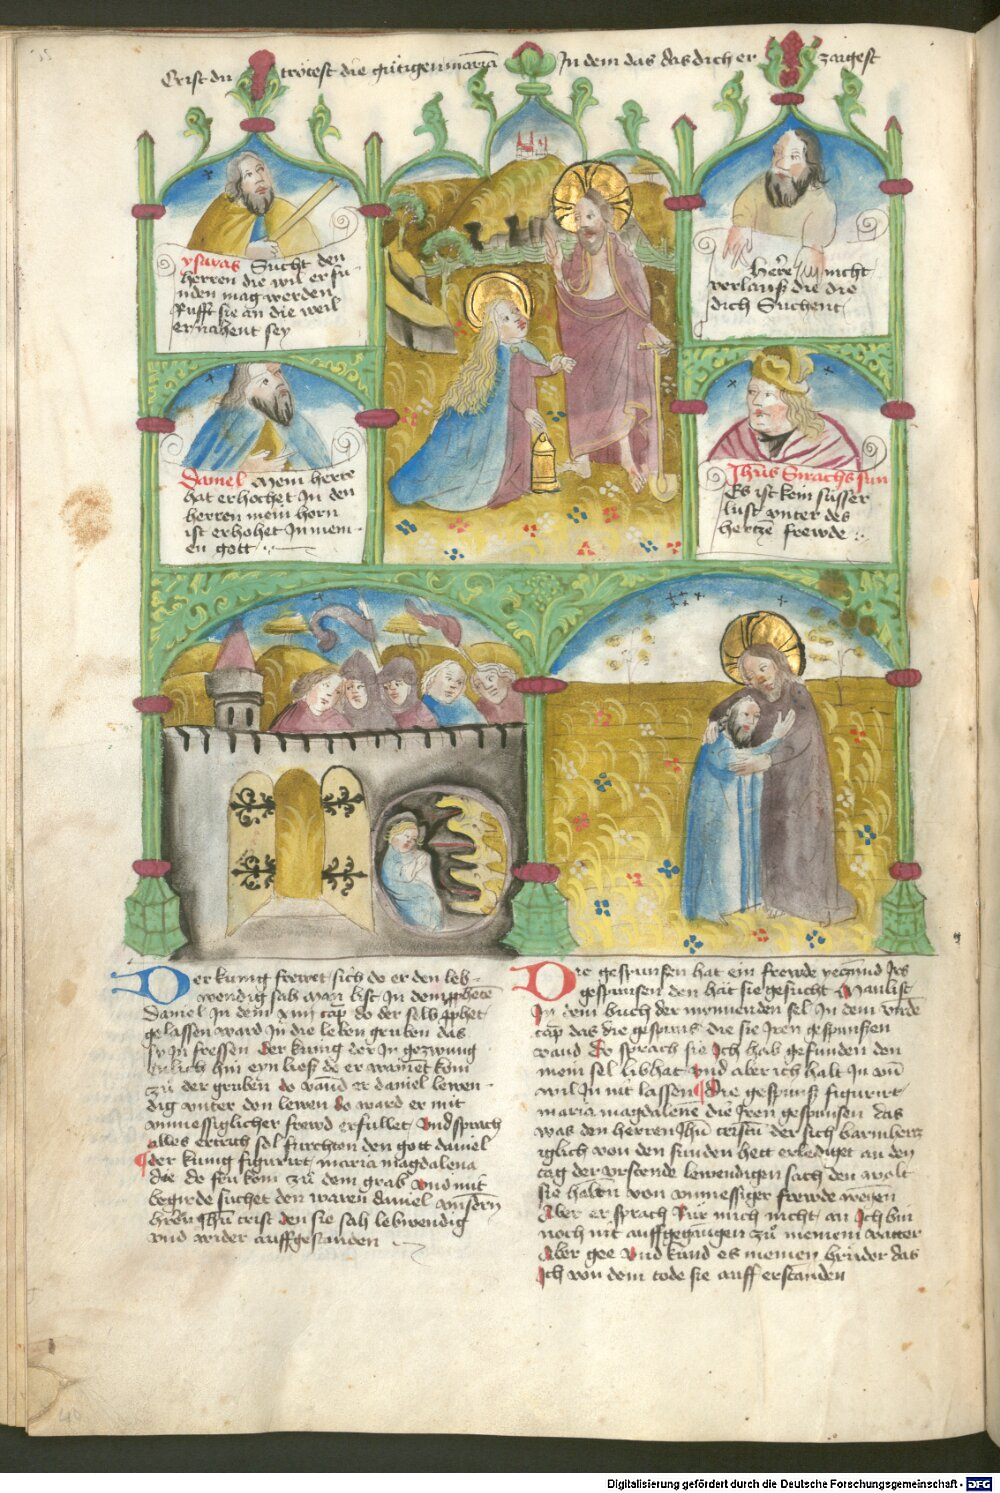 Crist du trötest die gütigen maria In dem das das dich er zaigest
ysaias Sucht den
herren die wil er fu
nden mag werden
Rufft sie an die weil
er nachent sey
herre nicht
verlauß die die
dich Suchent
Daniel Mein hertz
hat erhochet In den
herren mein horn
ist erhohet In mein
en gott
Jhūs Sirachs sun
Es ist kein süsser
lust vnter des
hertzē frewde
Der kunig frewet sich do er den leb
wendig sah Man list In dem pphetē
Daniel In dem xiiij cap do der selb pphet
gelassen ward In die leben gruben das
sy In fressen der kunig der In gezwung
enlich hin eyn ließ do er wainet kom
zu der gruben do vand er daniel lewen
dig vnter den lewen do ward er mit
vnmessiglicher frewd erfullet vnd sprach
alles ertrich sol furchten den gott daniel
der kunig figurirt maria magdalena
die do sen kom zu dem grab vnd mit
begirde suchet den waren daniel vnsern
herrē Jhū crist den sie sah lebwendig
vnd wider auffgestanden
Die gespunsen hat ein frewde Irs
gespunsen den hat sie gesucht Man list
In dem buch der mynnenden sel In dem
cap das die gespuns die sie Iren gespunsen
vand do sprach sie Ich hab gefunden den
mein sel lib hat vnd aber ich halt In vn̄
wil In nit lassen die gespuns figurirt
maria magdalene die Iren gespunsen das
was den herren Jhū cristū der sich barmhertz
iglich von den sunden hett erlediget an dem
tag der vrstende lewendigen sach den wolt
sie haben von vnmessiger frewde wegen
Aber er sprach Rür mich nicht an Ich bin
noch nit auffgegangen zu meinem vatter
Aber gee vnd künd es meinen brüder das
Ich von dem tode sie auff erstanden
40
Digitalisierung gefördert durch die Deutsche Forschungsgemeinschaft - DFG